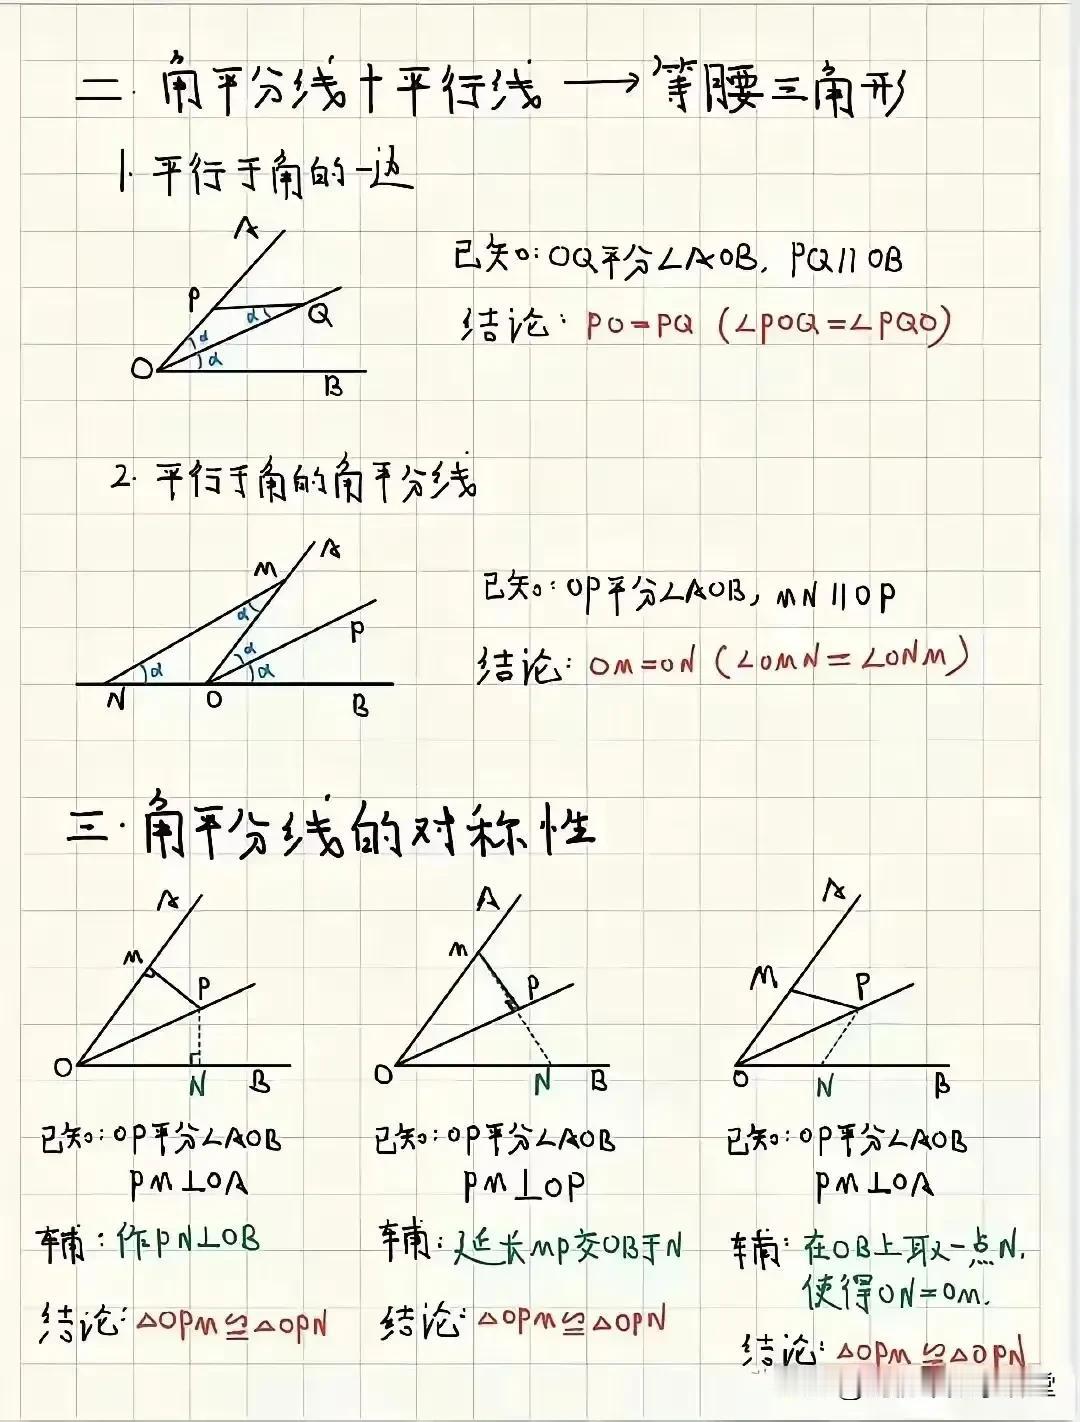 二. 角平分线+平行线 → 等腰三角形
1. 平行于角的一边
A
P
Q
α
α
α
O
B
已知: OQ平分∠AOB, PQ∥OB
结论: PO=PQ (∠POQ=∠PQO)
2. 平行于角的角平分线
A
M
P
α
α
α
α
N
O
B
已知: OP平分∠AOB, MN∥OP
结论: OM=ON (∠OMN=∠ONM)
三. 角平分线的对称性
A
M
P
O
N
B
A
M
P
O
N
B
A
M
P
O
N
B
已知: OP平分∠AOB
PM⊥OA
辅: 作PN⊥OB
结论: △OPM≌△OPN
已知: OP平分∠AOB
PM⊥OP
辅: 延长MP交OB于N
结论: △OPM≌△OPN
已知: OP平分∠AOB
PM⊥OA
辅: 在OB上取一点N,
使得ON=OM.
结论: △OPM≌△OPN